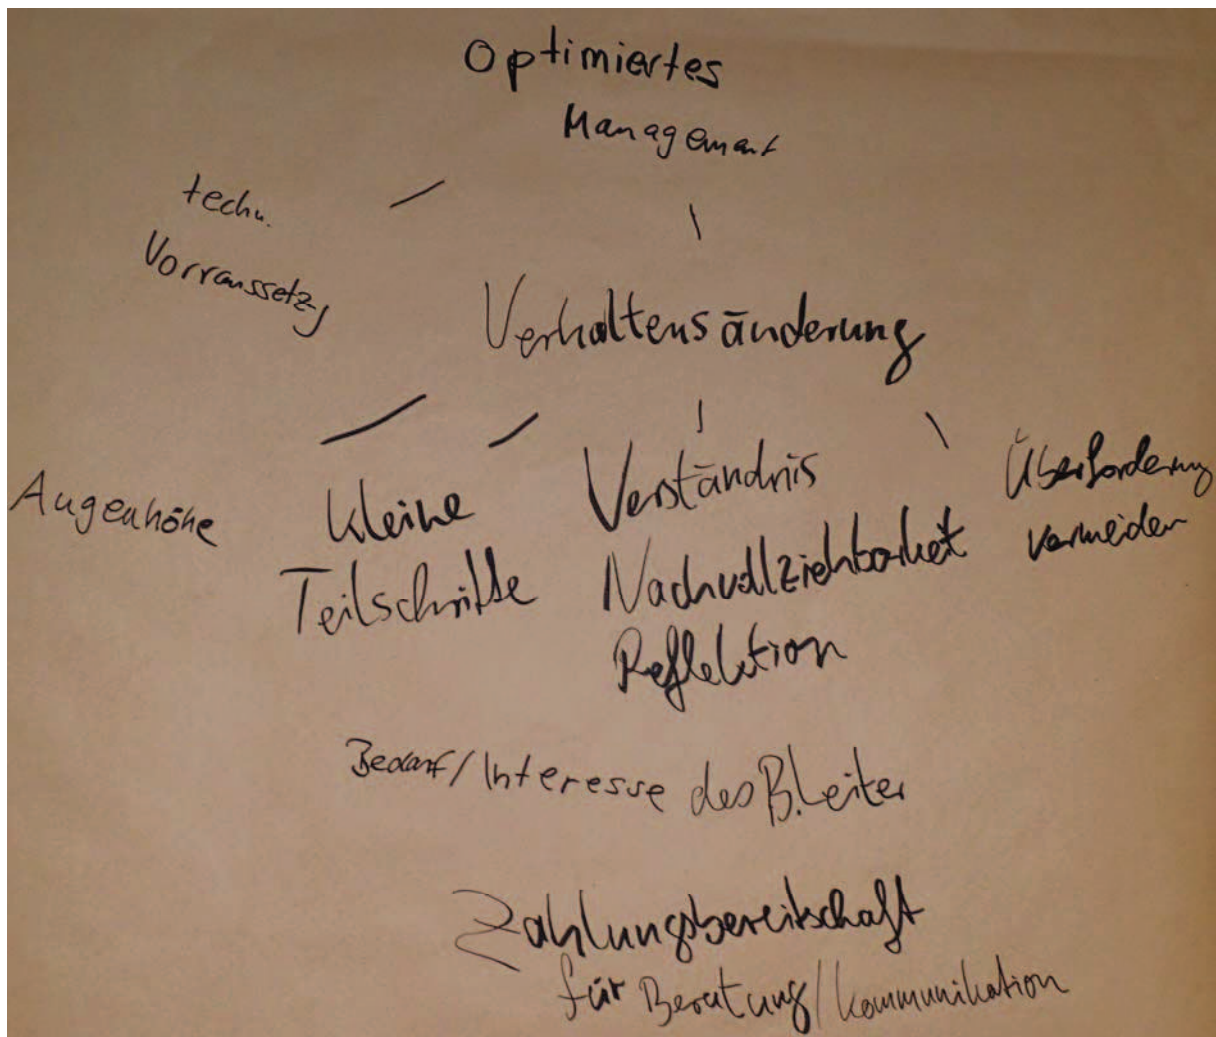 Optimiertes
Management
techn.
Vorraussetzg
Verhaltensänderung
Augenhöhe
kleine
Teilschritte
Verständnis
Nachvollziehbarkeit
Reflektion
Überforderung
vermeiden
Bedarf/Interesse des B.Leiter
Zahlungsbereitschaft
für Beratung/Kommunikation